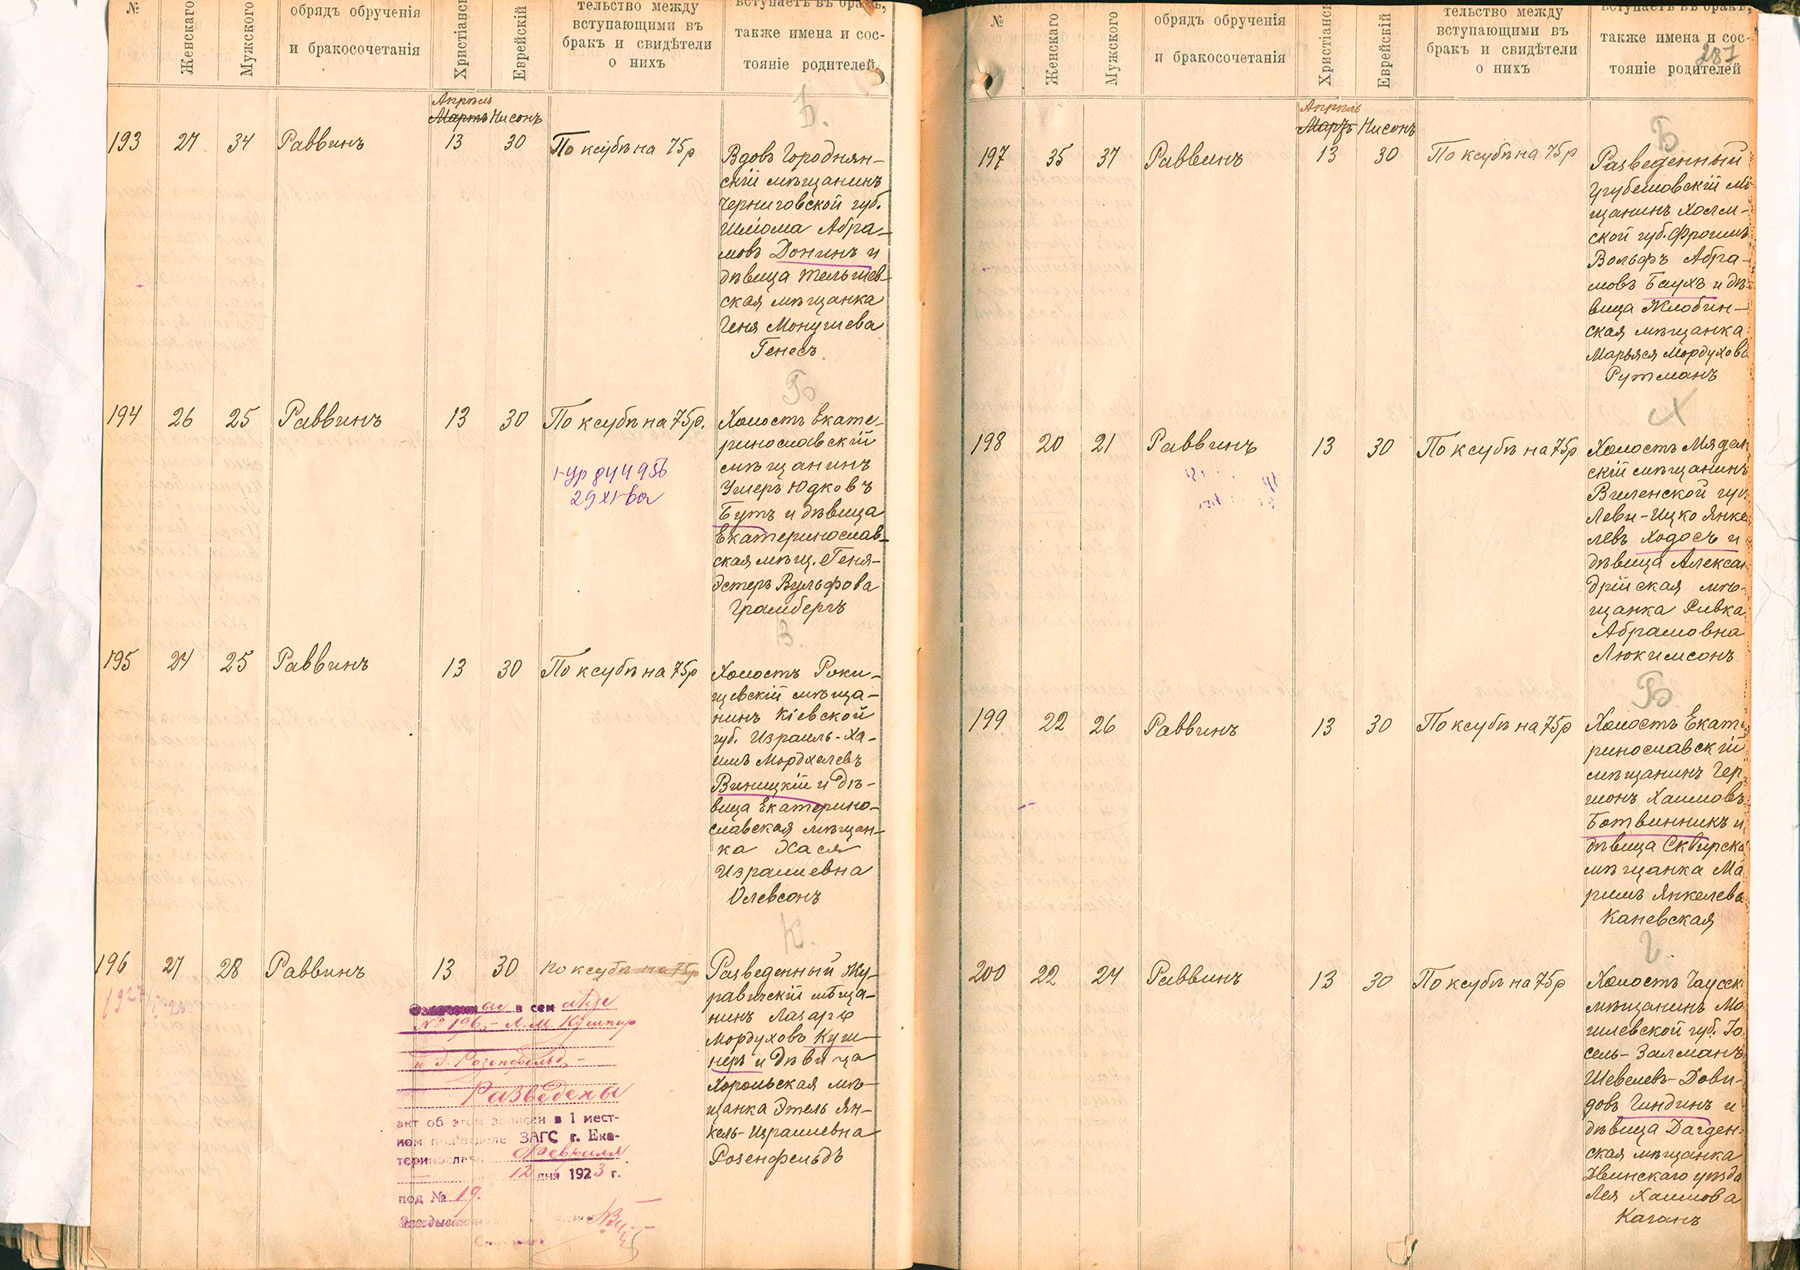 №
Женскаго
Мужского
обрядъ обрученія
и бракосочетанія
Христіанс
Еврейскій
тельство между
вступающими въ
бракъ и свидѣтели
о нихъ
вступаетъ въ бракъ,
также имена и сос-
тояніе родителей
Апрѣль
Мартъ Нисонъ
193 27 34 Раввинъ 13 30 По ксубѣ на 75р
Вдовъ Городнян-
скій мѣщанинъ
Черниговской губ.
Шлома Абра-
мовъ Донинъ и
дѣвица Тельшев-
ская мѣщанка
Геня Монушева
Генесъ
Б
194 26 25 Раввинъ 13 30 По ксубѣ на 75р.
Холостъ Екате-
ринославскій
мѣщанинъ
Ушеръ Юдковъ
Бутъ и дѣвица
Екатеринослав-
ская мѣщ. Геня-
Эстеръ Вульфова
Грамбергъ
З
195 24 25 Раввинъ 13 30 По ксубѣ на 75р
Холостъ Роки-
щевскій мѣща-
нинъ Кіевской
губ. Израиль-Ха-
имъ Мордхелевъ
Виницкій и дѣ-
вица Екатерино-
славская мѣщан-
ка Хася
Израилевна
Олевсонъ
К.
196 27 28 Раввинъ 13 30 По ксубѣ на 75р
Разведенный Жу-
равичскій мѣща-
нинъ Лазарь
Мордуховъ Куш-
неръ и дѣвица
Хорольская мѣ-
щанка Этель Ян-
кель-Израилевна
Розенфельдъ
в сем акте
№ 196 - Л. М. Кушнир
и Э. Розенфельд -
Разведены
акт об этом записан в 1 мест-
ном подотделе ЗАГС г. Ека-
теринослава Февраля
12 дня 1923 г.
под № 19.
287
№
Женскаго
Мужского
обрядъ обрученія
и бракосочетанія
Христіанс
Еврейскій
тельство между
вступающими въ
бракъ и свидѣтели
о нихъ
вступаетъ въ бракъ,
также имена и сос-
тояніе родителей
Апрѣль
Мартъ Нисонъ
Б
197 35 37 Раввинъ 13 30 По ксубѣ на 75р
Разведенный
Грубешовскій мѣ-
щанинъ Холм-
ской губ. Фроимъ
Вольфъ Абра-
мовъ Баухъ и дѣ-
вица Жлобин-
ская мѣщанка
Марьяся Мордухов
Рутманъ
Х
198 20 21 Раввинъ 13 30 По ксубѣ на 75р
Холостъ Мядел
скій мѣщанинъ
Виленской гу
Леви-Ицко Янке
левъ Ходосъ и
дѣвица Алексан
дрійская мѣ-
щанка Ривка
Абрамовна
Люкимсонъ
Б
199 22 26 Раввинъ 13 30 По ксубѣ на 75р
Холостъ Екате
ринославскій
мѣщанинъ Гер
шонъ Хаимовъ
Ботвинникъ и
дѣвица Сквирска
мѣщанка Ма
римъ Янкелева
Каневская
Г
200 22 24 Раввинъ 13 30 По ксубѣ на 75р
Холостъ Чаусск
мѣщанинъ Мо
гилевской губ. Іо
сель-Залманъ
Шевелевъ-Дови-
довъ Гиндинъ и
дѣвица Дагден-
ская мѣщанка
Двинскаго уѣзда
Лея Хаимова
Каганъ